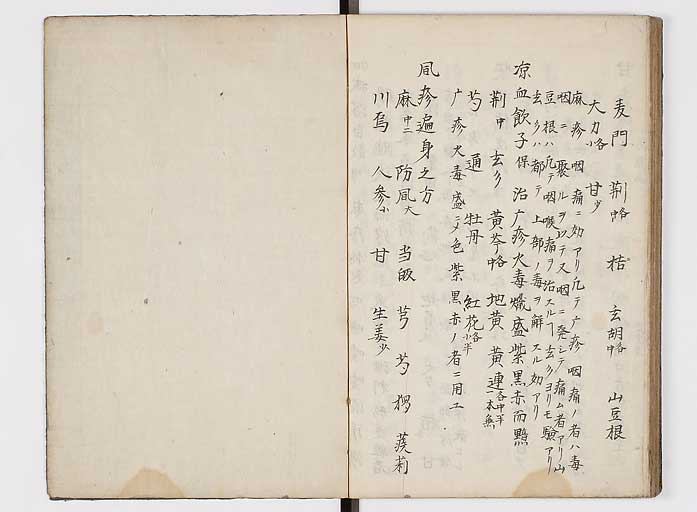 麦門 荊中各 桔 玄胡中各 山豆根
大力小各 甘少
麻疹咽痛ニ効アリ凡テ广疹咽痛ノ者ハ毒
咽ニ聚ルヲ以テ又咽ニ発シテ痛ム者アリ山
豆根ハ凡テ咽喉痛ヲ治スルヿ玄参ヨリモ験アリ
玄参ハ都テ上部ノ毒ヲ解スル効アリ
凉血飲子保 治广疹火毒熾盛紫黒赤而黯
荊中 玄参 黄芩中各 地黄 黄連各中半一本無
芍 通 牡丹 紅花各小半
广疹火毒盛ニメ色紫黒赤ノ者ニ用エ
風疹遍身之方
麻中二 防風大 当皈 芎 芍 椤 蒺莉
川烏 人参小 甘 生姜少